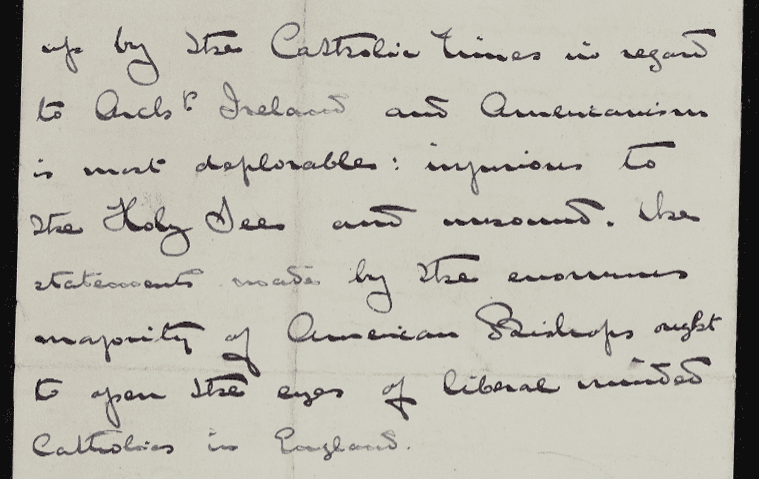 up by the Catholic Times in regard
to Archp Ireland and Americanism
is most deplorable: injurious to
the Holy See and unsound. The
statements made by the enormous
majority of American Bishops ought
to open the eyes of liberal minded
Catholics in England.